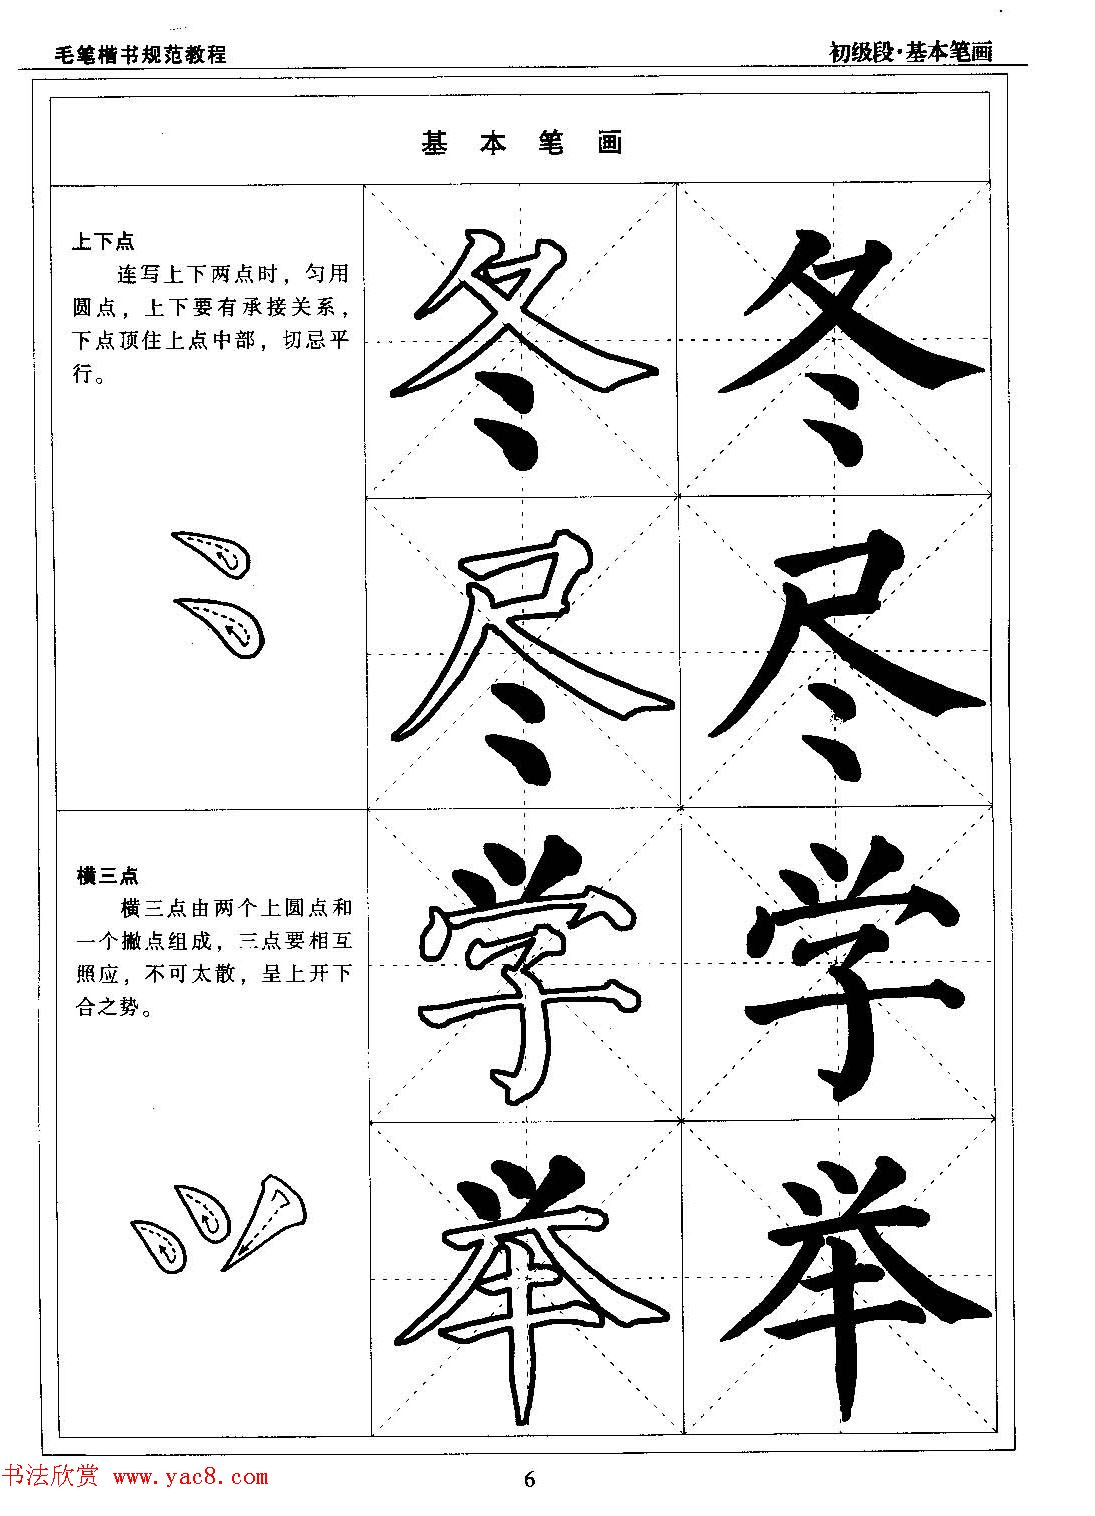 毛笔楷书规范教程
初级段·基本笔画
基本笔画
上下点
连写上下两点时，匀用
圆点，上下要有承接关系，
下点顶住上点中部，切忌平
行。
冬 冬
尽 尽
横三点
横三点由两个上圆点和
一个撇点组成，三点要相互
照应，不可太散，呈上开下
合之势。
学 学
举 举
书法欣赏 www.yac8.com
6